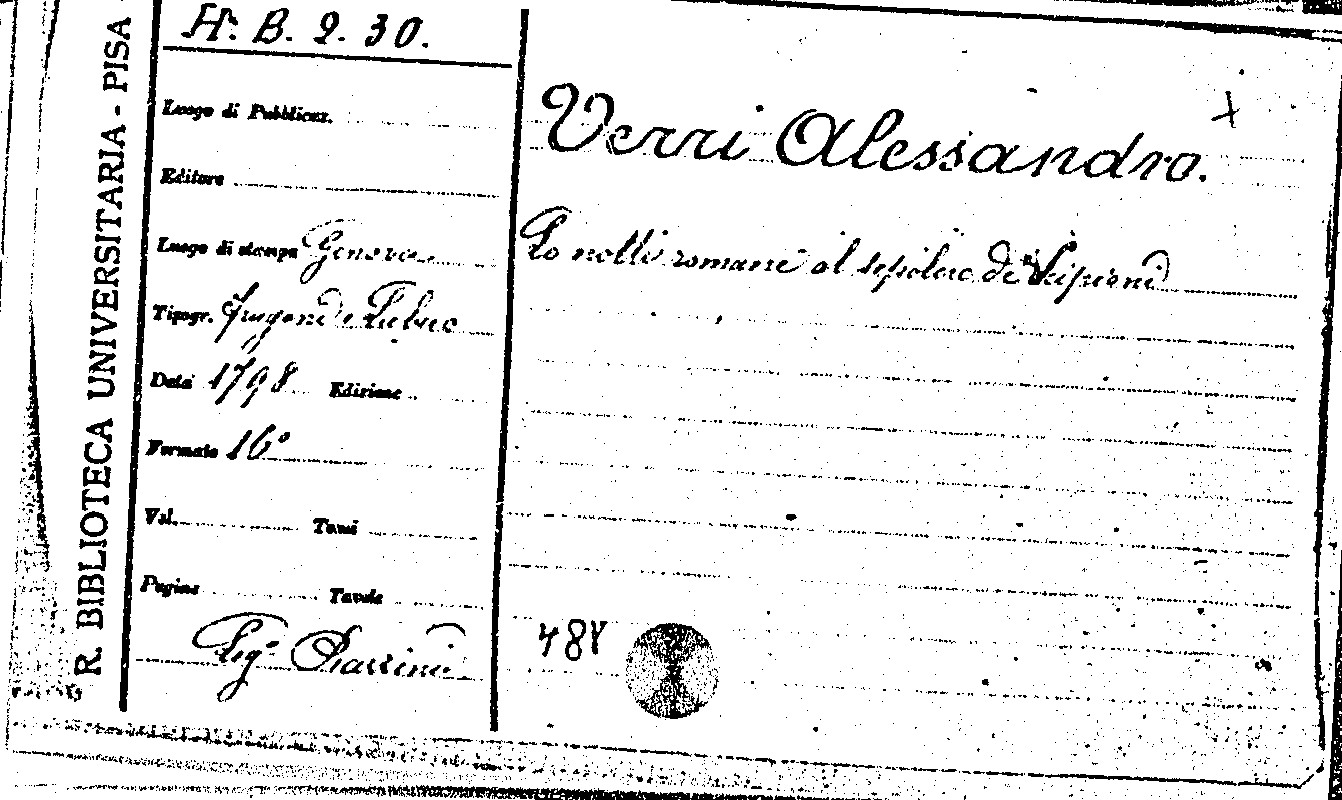 R. BIBLIOTECA UNIVERSITARIA - PISA
H. B. 2. 30.
Luogo di Pubblicaz.
Editore
Luogo di stampa Genova
Tipogr. Frugoni e
Data 1798 Edizione
Formato 16°
Vol. Tomi
Pagine Tavole
Verri Alessandro.
Le notti romane al sepolcro de' Scipioni